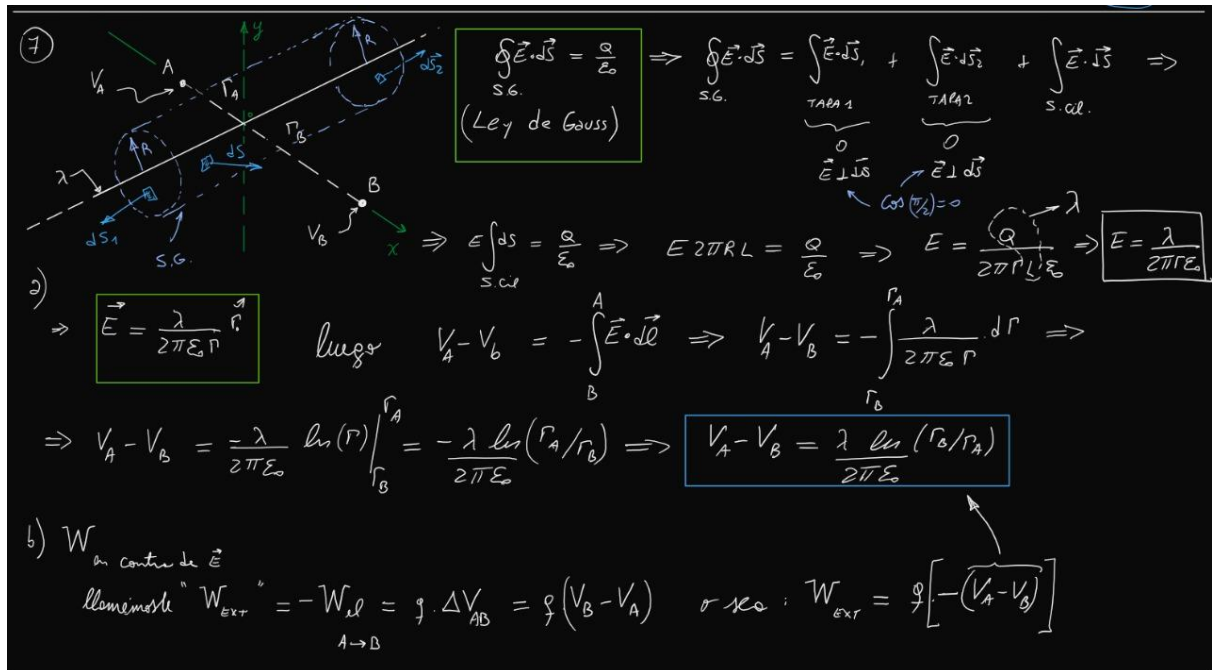 7
y
A
V_A
r_A
R
dS⃗₂
o
r_B
R
dS⃗
λ
B
V_B
dS⃗₁
S.G.
x
∮_{S.G.} E⃗·dS⃗ = Q/ε₀
(Ley de Gauss)
⇒ ∮_{S.G.} E⃗·dS⃗ = ∫_{TAPA 1} E⃗·dS⃗₁ + ∫_{TAPA 2} E⃗·dS⃗₂ + ∫_{S.cil.} E⃗·dS⃗ ⇒
0 0
E⃗ ⊥ dS⃗ E⃗ ⊥ dS⃗
cos(π/2)=0
⇒ E ∫_{S.cil} dS = Q/ε₀ ⇒ E 2πRL = Q/ε₀ ⇒ E = Q/(2πrLε₀) ⇒ E = λ/(2πrε₀)
λ
a)
⇒ E⃗ = λ/(2πε₀r) r̂ luego V_A - V_b = -∫_B^A E⃗·dl⃗ ⇒ V_A - V_B = -∫_{r_B}^{r_A} λ/(2πε₀r) · dr ⇒
⇒ V_A - V_B = -λ/(2πε₀) ln(r)|_{r_B}^{r_A} = -λ ln(r_A/r_B)/(2πε₀) ⇒ V_A - V_B = λ ln(r_B/r_A)/(2πε₀)
b) W en contra de E⃗
llamémosle "W_EXT" = -W_el A→B = q·ΔV_AB = q(V_B - V_A) o sea : W_EXT = q[-(V_A - V_B)]